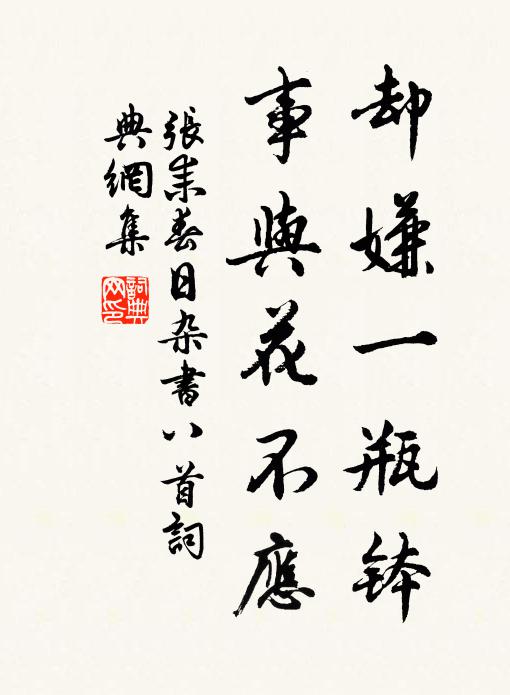 却嫌一瓶鉢
事與花不應
張耒春日杂書八首詞
典網集
詞典网印